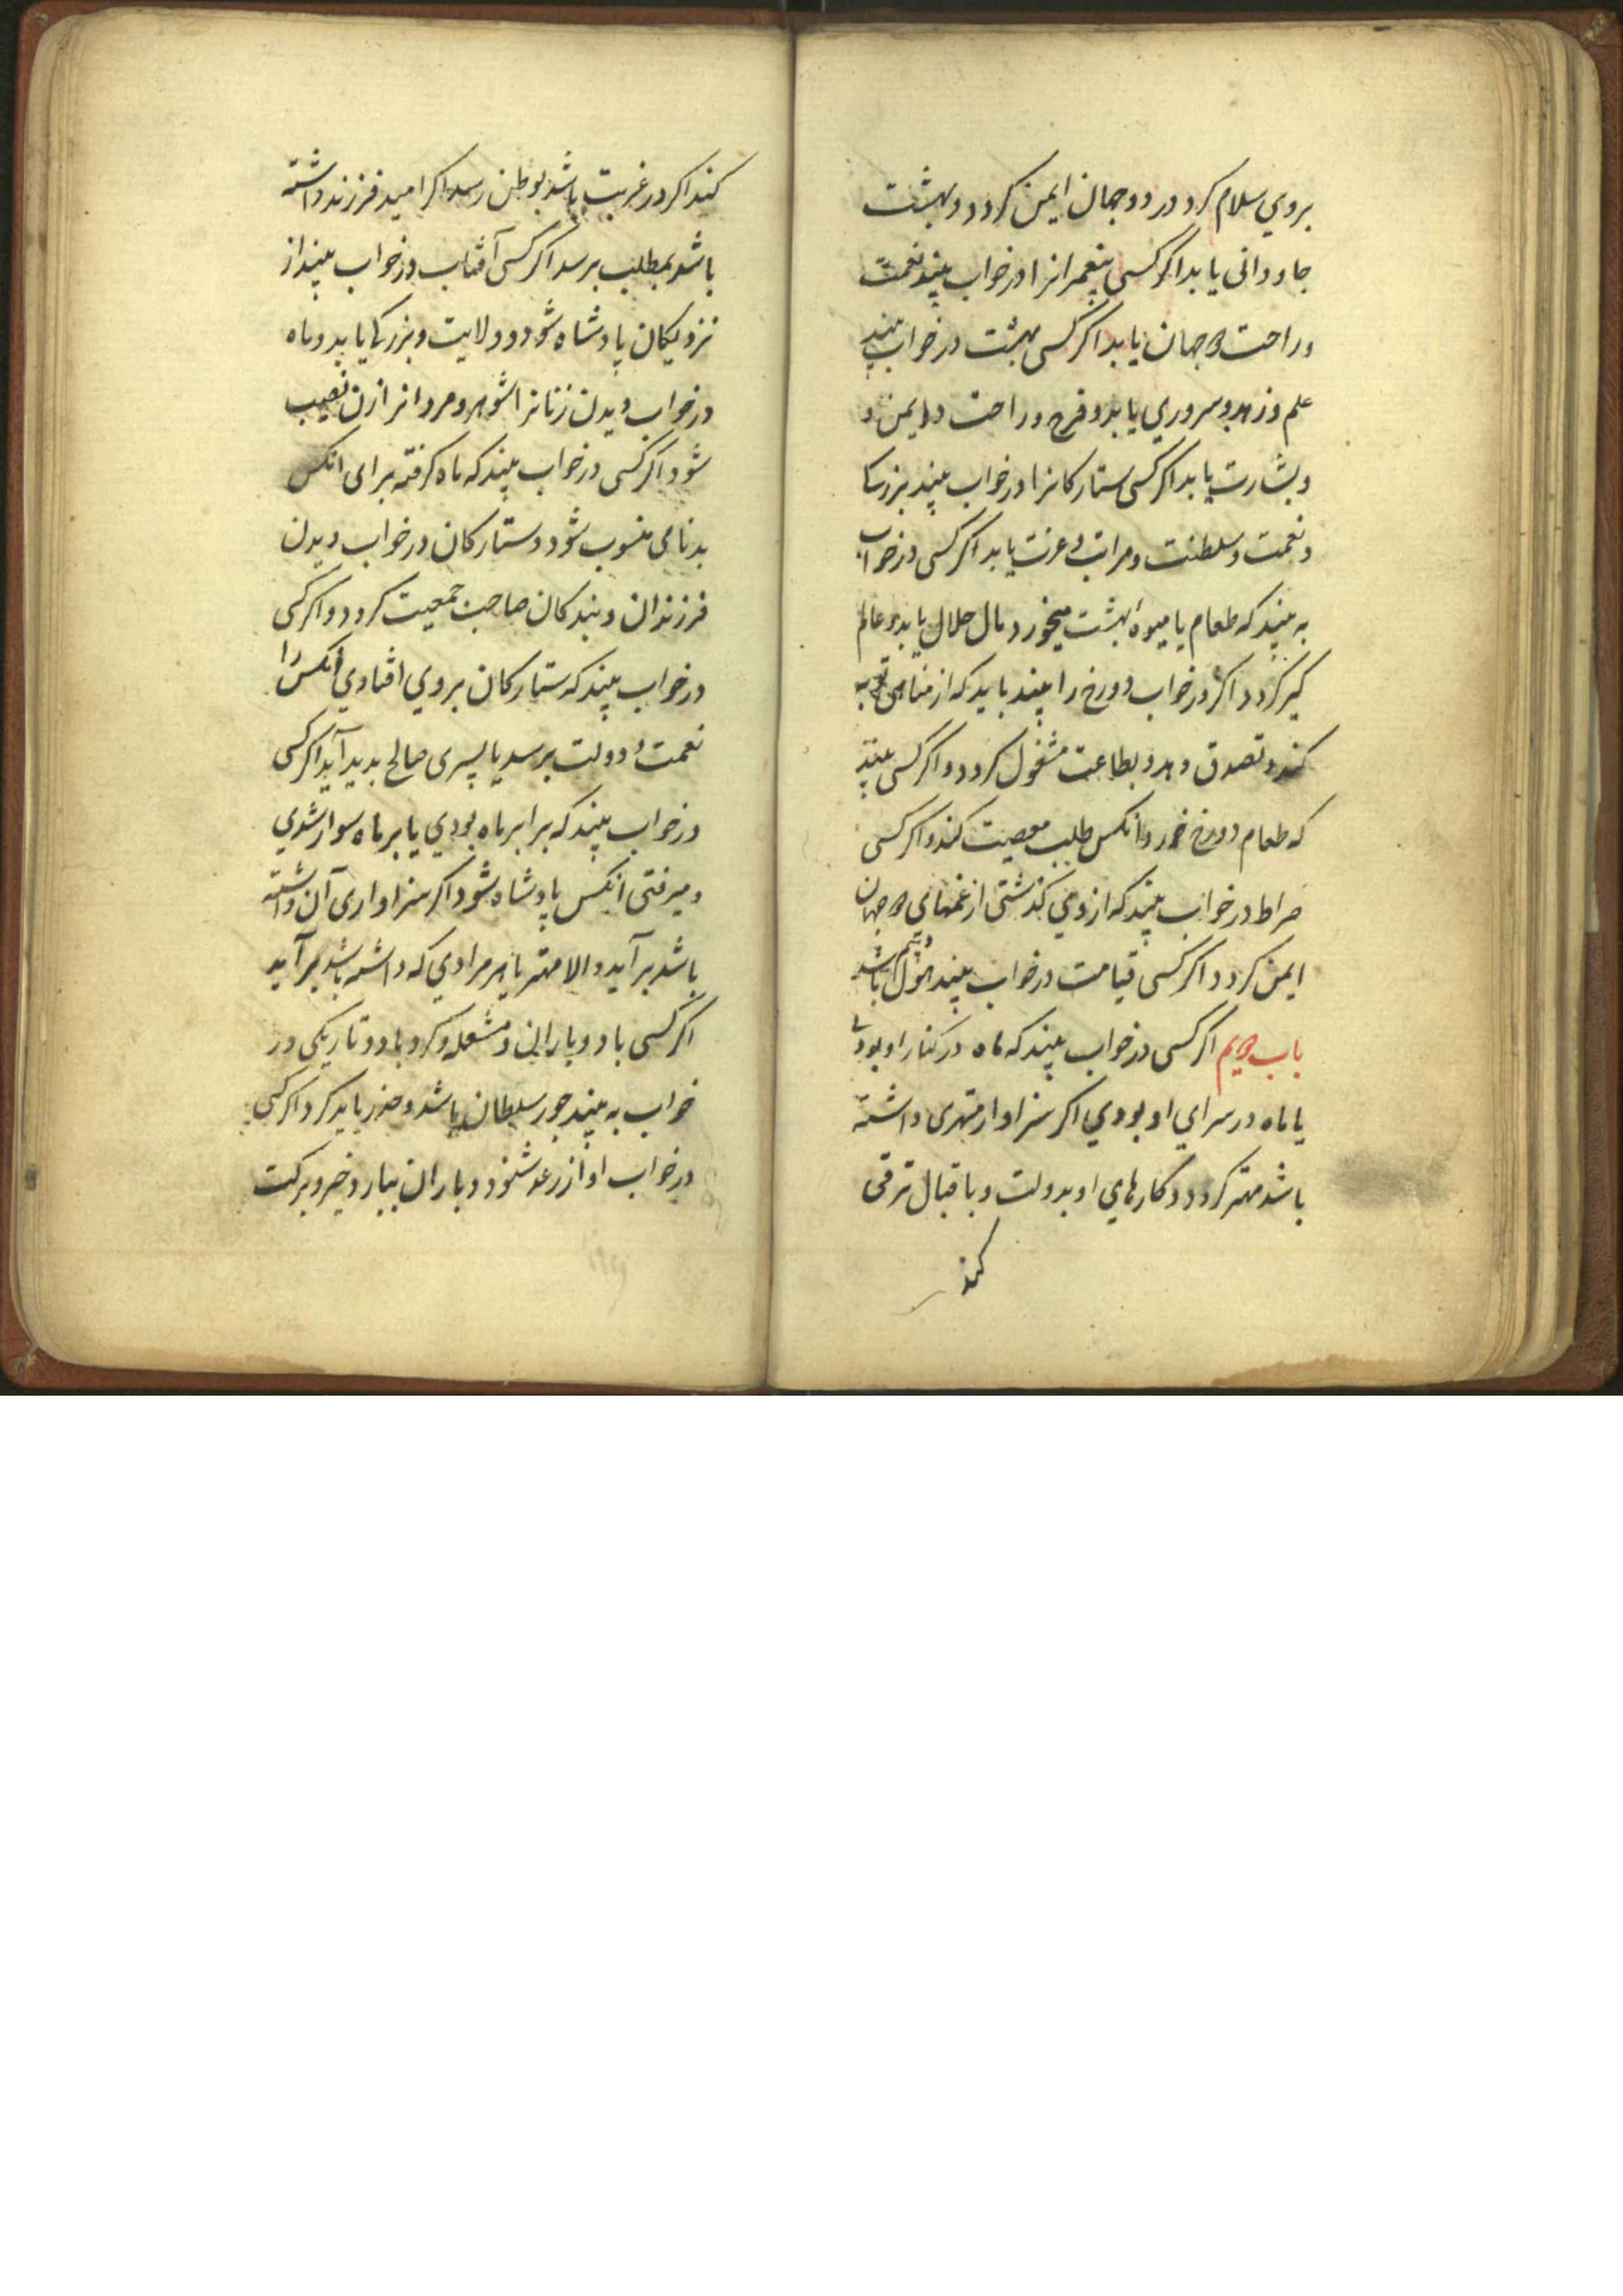 بروي سلام کرد در دو جهان ایمن کردد و بهشت
جاودانی یابد اکر کسی پیغمبرانرا در خواب بیند نعمت
و راحت جهان یابد اکر کسی بهشت در خواب بیند
علم و زهد و سروري یابد و فرح و راحت و ایمن و
و بشارت یابد اکر کسی ستارکانرا در خواب بیند بزرکی
و نعمت و سلطنت و مراتب و عزت یابد اکر کسی در خواب
به بیند که طعام یا میوه بهشت میخورد مال حلال یابد و عالم
کیر کردد اکر در خواب دوزخ را بیند باید که از مناهی توبه
کند و تصدق دهد و بطاعت مشغول کردد و اکر کسی بیند
که طعام دوزخ خورد انکس طلب معصیت کند و اکر کسی
صراط در خواب بیند که از وي کذشتی از غمهاي جهان
ایمن کردد اکر کسی قیامت در خواب بیند هول و بیم باشد
باب اکر کسی در خواب بیند که ماه در کنار او بودي
یا ماه در سراي او بودي اکر سزاوار مهتری داشته
باشد مهتر کردد و کارهاي او بدولت و باقبال ترقی
کند
کند اکر در غربت باشد بوطن رسد اکر امید فرزند داشته
باشد بمطلب برسد اکر کسی آفتاب در خواب بیند از
نزدیکان پادشاه شود و ولایت و بزرکی یابد و ماه
در خواب دیدن زنانرا شوهر و مردانرا زن نصیب
شود اکر کسی در خواب بیند که ماه کرفته برای انکس
بدنامی منسوب شود و ستارکان در خواب دیدن
فرزندان و بندکان صاحب جمعیت کردد و اکر کسی
در خواب بیند که ستارکان بروي افتادي انکس را
نعمت و دولت برسد یا پسری صالح بدید آید اکر کسی
در خواب بیند که برابر ماه بودي یا بر ماه سوار شدي
و میرفتی انکس پادشاه شود اکر سزاواری آن داشته
باشد برآید و الا مهتر یا هر مرادي که داشته باشد برآید
اکر کسی باد و بارانی و مشعله و کرد باد و تاریکی در
خواب به بیند جور سلطان باشد و حذر باید کرد اکر کسی
در خواب اواز رعد شنود و باران ببارد خیر و برکت